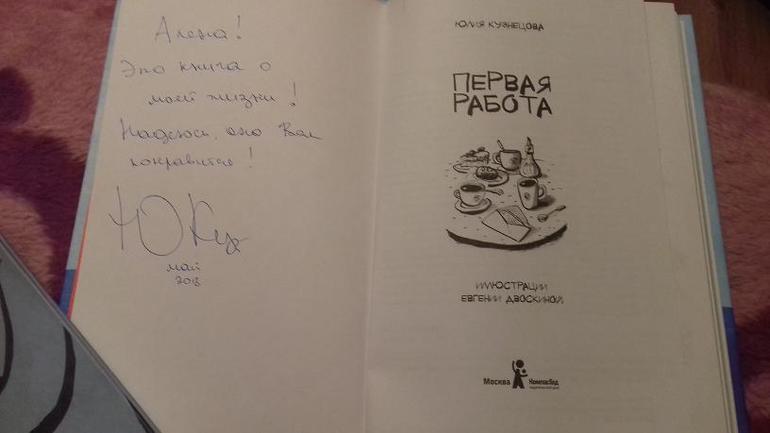 Алена!
Эта книга о
моей жизни!
Надеюсь, она Вам
понравится!
ЮКуз
май
2018
ЮЛИЯ КУЗНЕЦОВА
ПЕРВАЯ
РАБОТА
ИЛЛЮСТРАЦИИ
ЕВГЕНИИ ДВОСКИНОЙ
Москва КомпасГид